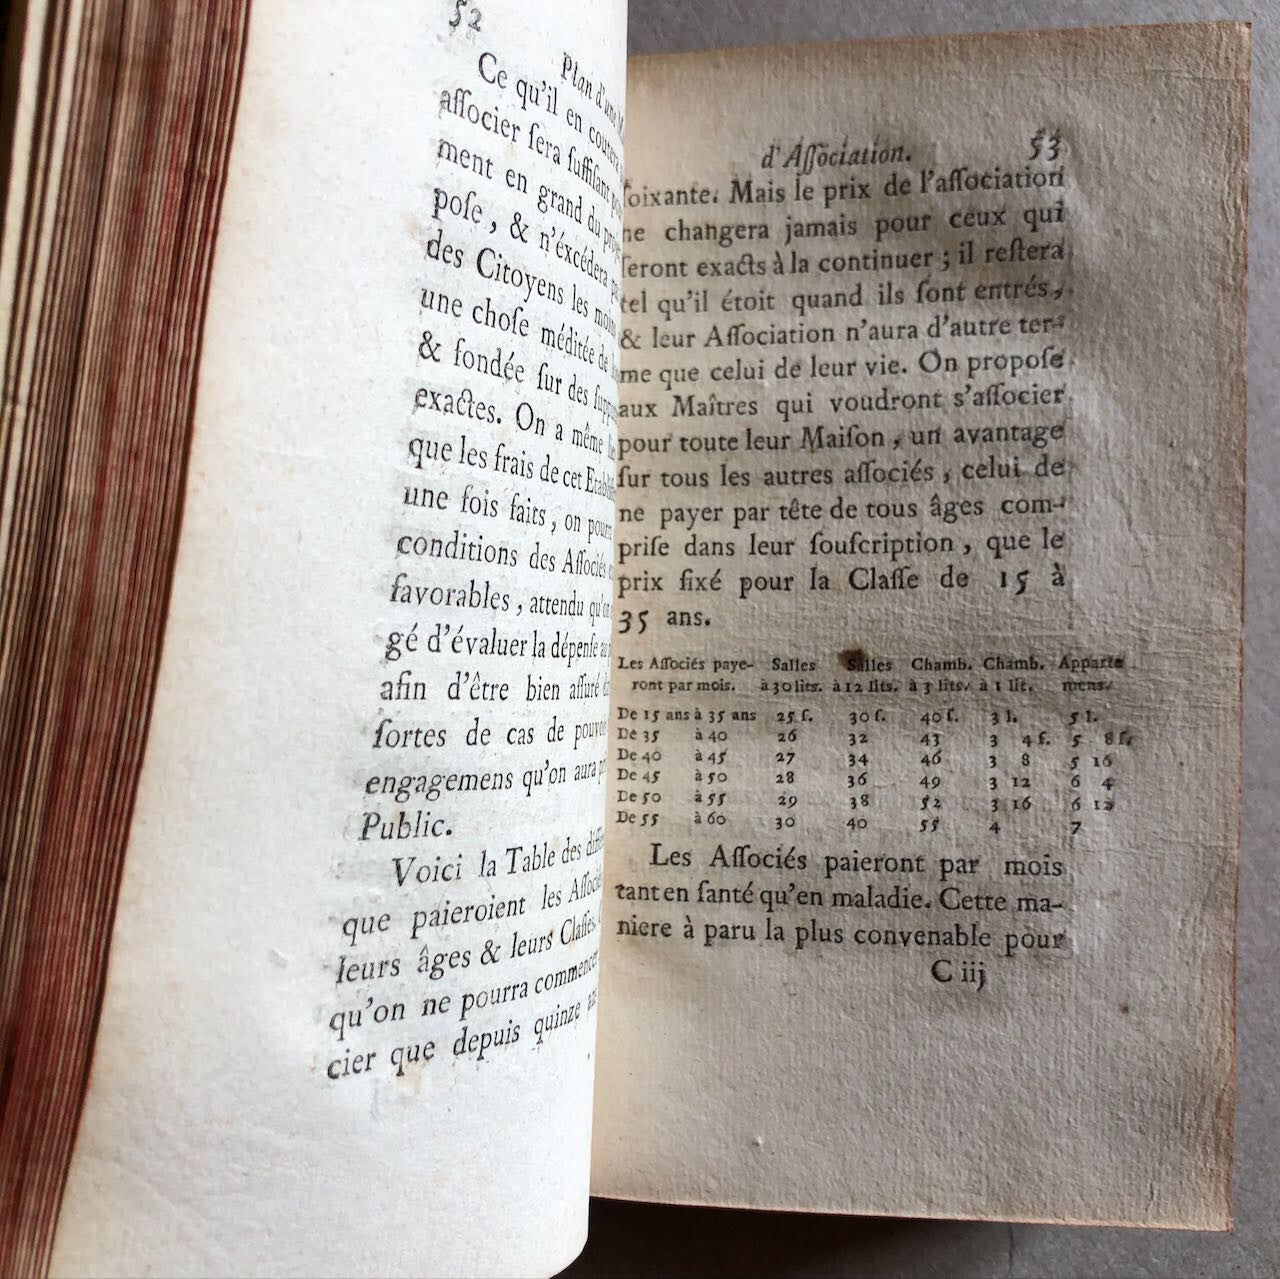 52
Plan d'une
Ce qu'il en coutera
aſſocier ſera ſuffiſant
ment en grand du
poſe, & n'éxcédera
des Citoyens les moins
une choſe méditée de
& fondée ſur des
exactes. On a même
que les frais de cet
une fois faits, on
conditions des Aſſociés
favorables, attendu qu'on
gé d'évaluer la dépenſe au
afin d'être bien aſſuré
ſortes de cas de pouvoir
engagemens qu'on aura
Public.
Voici la Table des
que paieroient les Aſſociés
leurs âges & leurs Claſſes.
qu'on ne pourra commencer
cier que depuis quinze ans
d'Aſſociation. 53
ſoixante. Mais le prix de l'aſſociation
ne changera jamais pour ceux qui
ſeront exacts à la continuer; il reſtera
tel qu'il étoit quand ils ſont entrés,
& leur Aſſociation n'aura d'autre ter-
me que celui de leur vie. On propoſe
aux Maîtres qui voudront s'aſſocier
pour toute leur Maiſon, un avantage
ſur tous les autres aſſociés, celui de
ne payer par tête de tous âges com-
priſe dans leur ſouſcription, que le
prix fixé pour la Claſſe de 15 à
35 ans.
Les Aſſociés paye- Salles Salles Chamb. Chamb. Apparte
ront par mois. à 30 lits. à 12 lits. à 3 lits. à 1 lit. mens.
De 15 ans à 35 ans 25 ſ. 30 ſ. 40 ſ. 3 l. 5 l.
De 35 à 40 26 32 43 3 4 ſ. 5 8 ſ.
De 40 à 45 27 34 46 3 8 5 16
De 45 à 50 28 36 49 3 12 6 4
De 50 à 55 29 38 52 3 16 6 12
De 55 à 60 30 40 55 4 7
Les Aſſociés paieront par mois
tant en ſanté qu'en maladie. Cette ma-
niere à paru la plus convenable pour
C iij